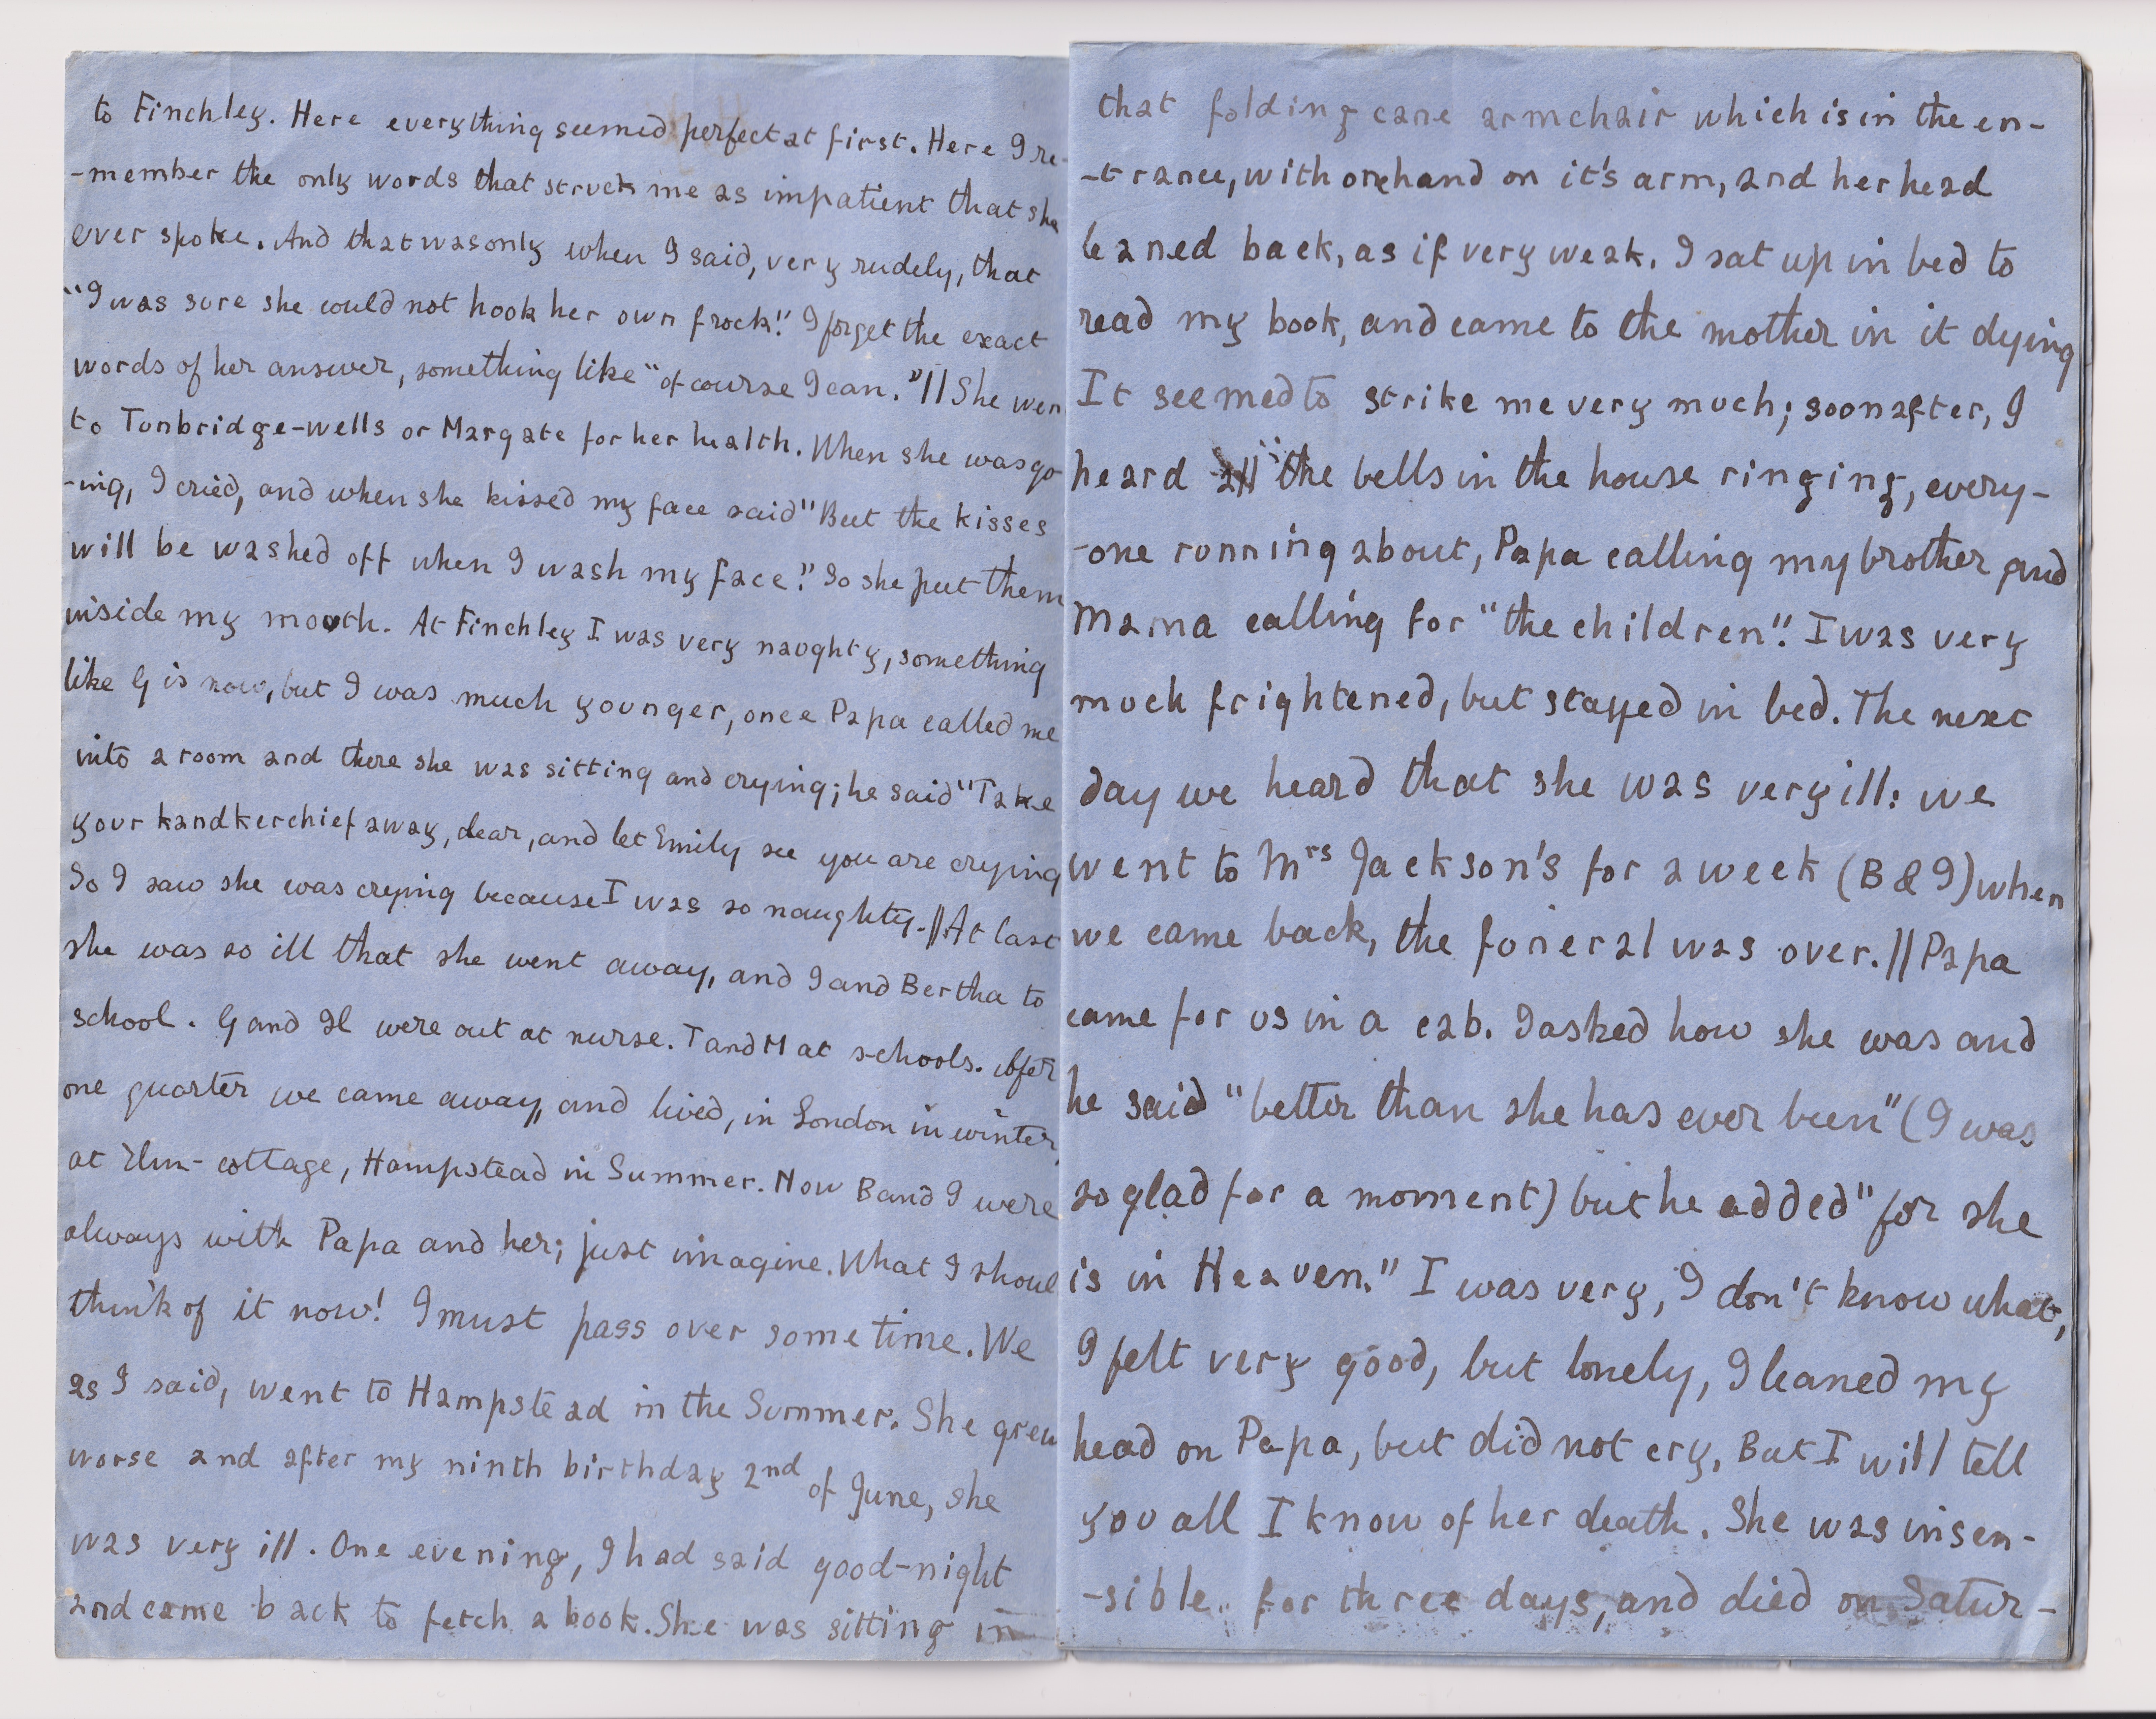 to Finchley. Here everything seemed perfect at first. Here I re-
-member the only words that struck me as impatient that she
ever spoke. And that was only when I said, very rudely, that
"I was sure she could not hook her own frock". I forget the exact
words of her answer, something like "of course I can." // She wen
to Tunbridge-wells or Margate for her health. When she was go
-ing, I cried, and when she kissed my face said "But the kisses
will be washed off when I wash my face". So she put them
inside my mouth. At Finchley I was very naughty, something
like G is now, but I was much younger, once Papa called me
into a room and there she was sitting and crying; he said "Take
your handkerchief away, dear, and let Emily see you are crying
So I saw she was crying because I was so naughty. // At last
she was so ill that she went away, and I and Bertha to
school. G and H were out at nurse. T and M at schools. After
one quarter we came away, and lived, in London in winter,
at Elm-cottage, Hampstead in Summer. Now B and I were
always with Papa and her; just imagine. What I shoul
think of it now! I must pass over some time. We
as I said, went to Hampstead in the Summer. She grew
worse and after my ninth birthday 2nd of June, she
was very ill. One evening, I had said good-night
and came back to fetch a book. She was sitting in
that folding cane armchair which is in the en-
-trance, with one hand on it's arm, and her head
leaned back, as if very weak. I sat up in bed to
read my book, and came to the mother in it dying
It seemed to strike me very much; soon after, I
heard all the bells in the house ringing, every-
-one running about, Papa calling my brother and
Mama calling for "the children". I was very
much frightened, but stayed in bed. The next
day we heard that she was very ill: we
went to Mrs Jackson's for a week (B & I) when
we came back, the funeral was over. // Papa
came for us in a cab. I asked how she was and
he said "better than she has ever been" (I was
so glad for a moment) but he added "for she
is in Heaven." I was very, I don't know what,
I felt very good, but lonely, I leaned my
head on Papa, but did not cry. But I will tell
you all I know of her death. She was insen-
-sible for three days, and died on Satur-